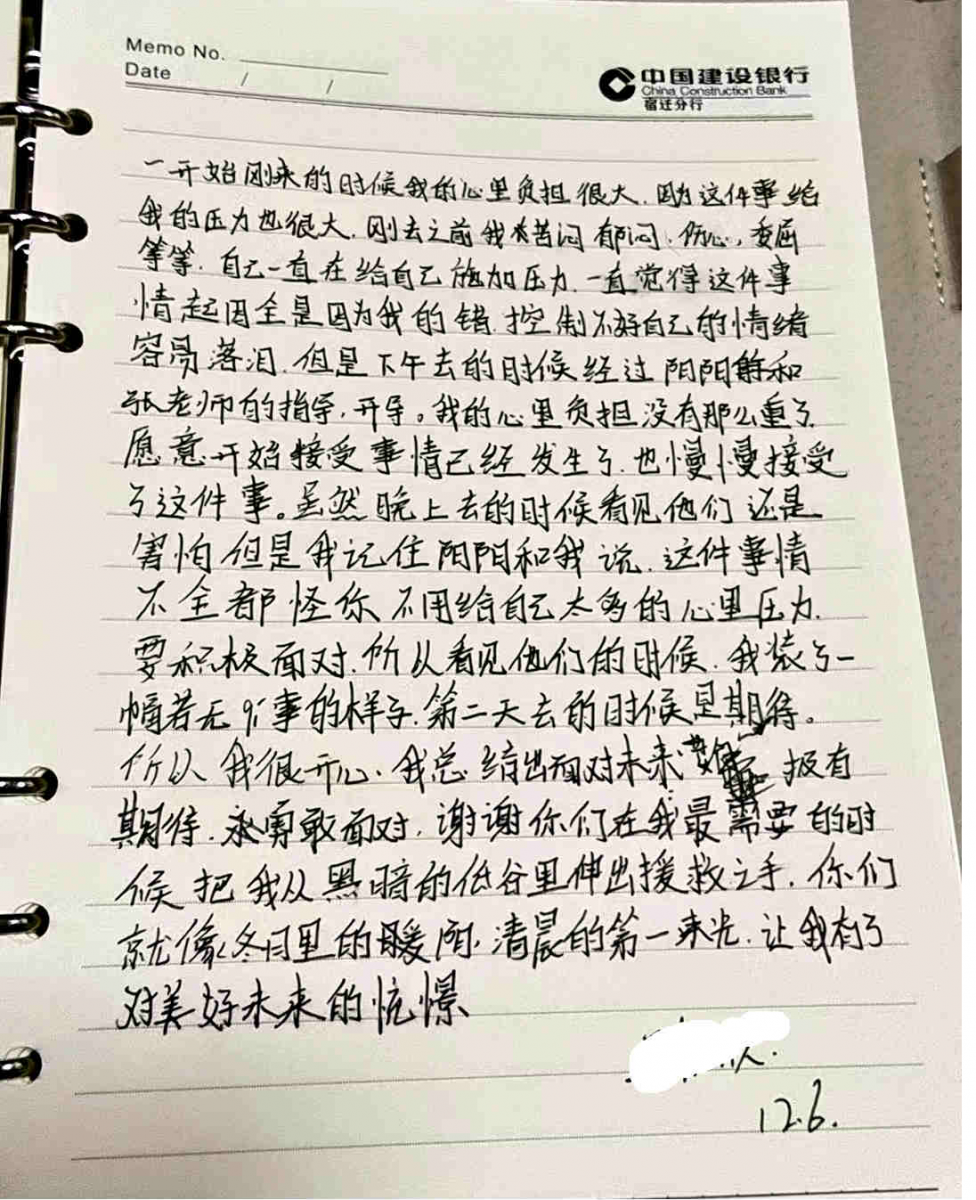 Memo No.
Date / /
中国建设银行
China Construction Bank
宿迁分行
一开始刚来的时候我的心里负担很大.因为这件事给
我的压力也很大.刚去之前我苦闷郁闷.伤心,委屈
等等.自己一直在给自己施加压力.一直觉得这件事
情起因全是因为我的错.控制不好自己的情绪
容易落泪.但是下午去的时候经过阳阳和
张老师的指导,开导。我的心里负担没有那么重了.
愿意开始接受事情已经发生了.也慢慢接受
了这件事。虽然晚上去的时候看见他们还是
害怕但是我记住阳阳和我说.这件事情
不全都怪你不用给自己太多的心里压力.
要积极面对.所以看见他们的时候.我装了一
幅若无其事的样子.第二天去的时候是期待。
所以我很开心.我总结出面对未来要报有
期待.永勇敢面对.谢谢你们在我最需要的时
候把我从黑暗的低谷里伸出援救之手.你们
就像冬日里的暖阳,清晨的第一束光.让我有了
对美好未来的忱憬、
12.6.